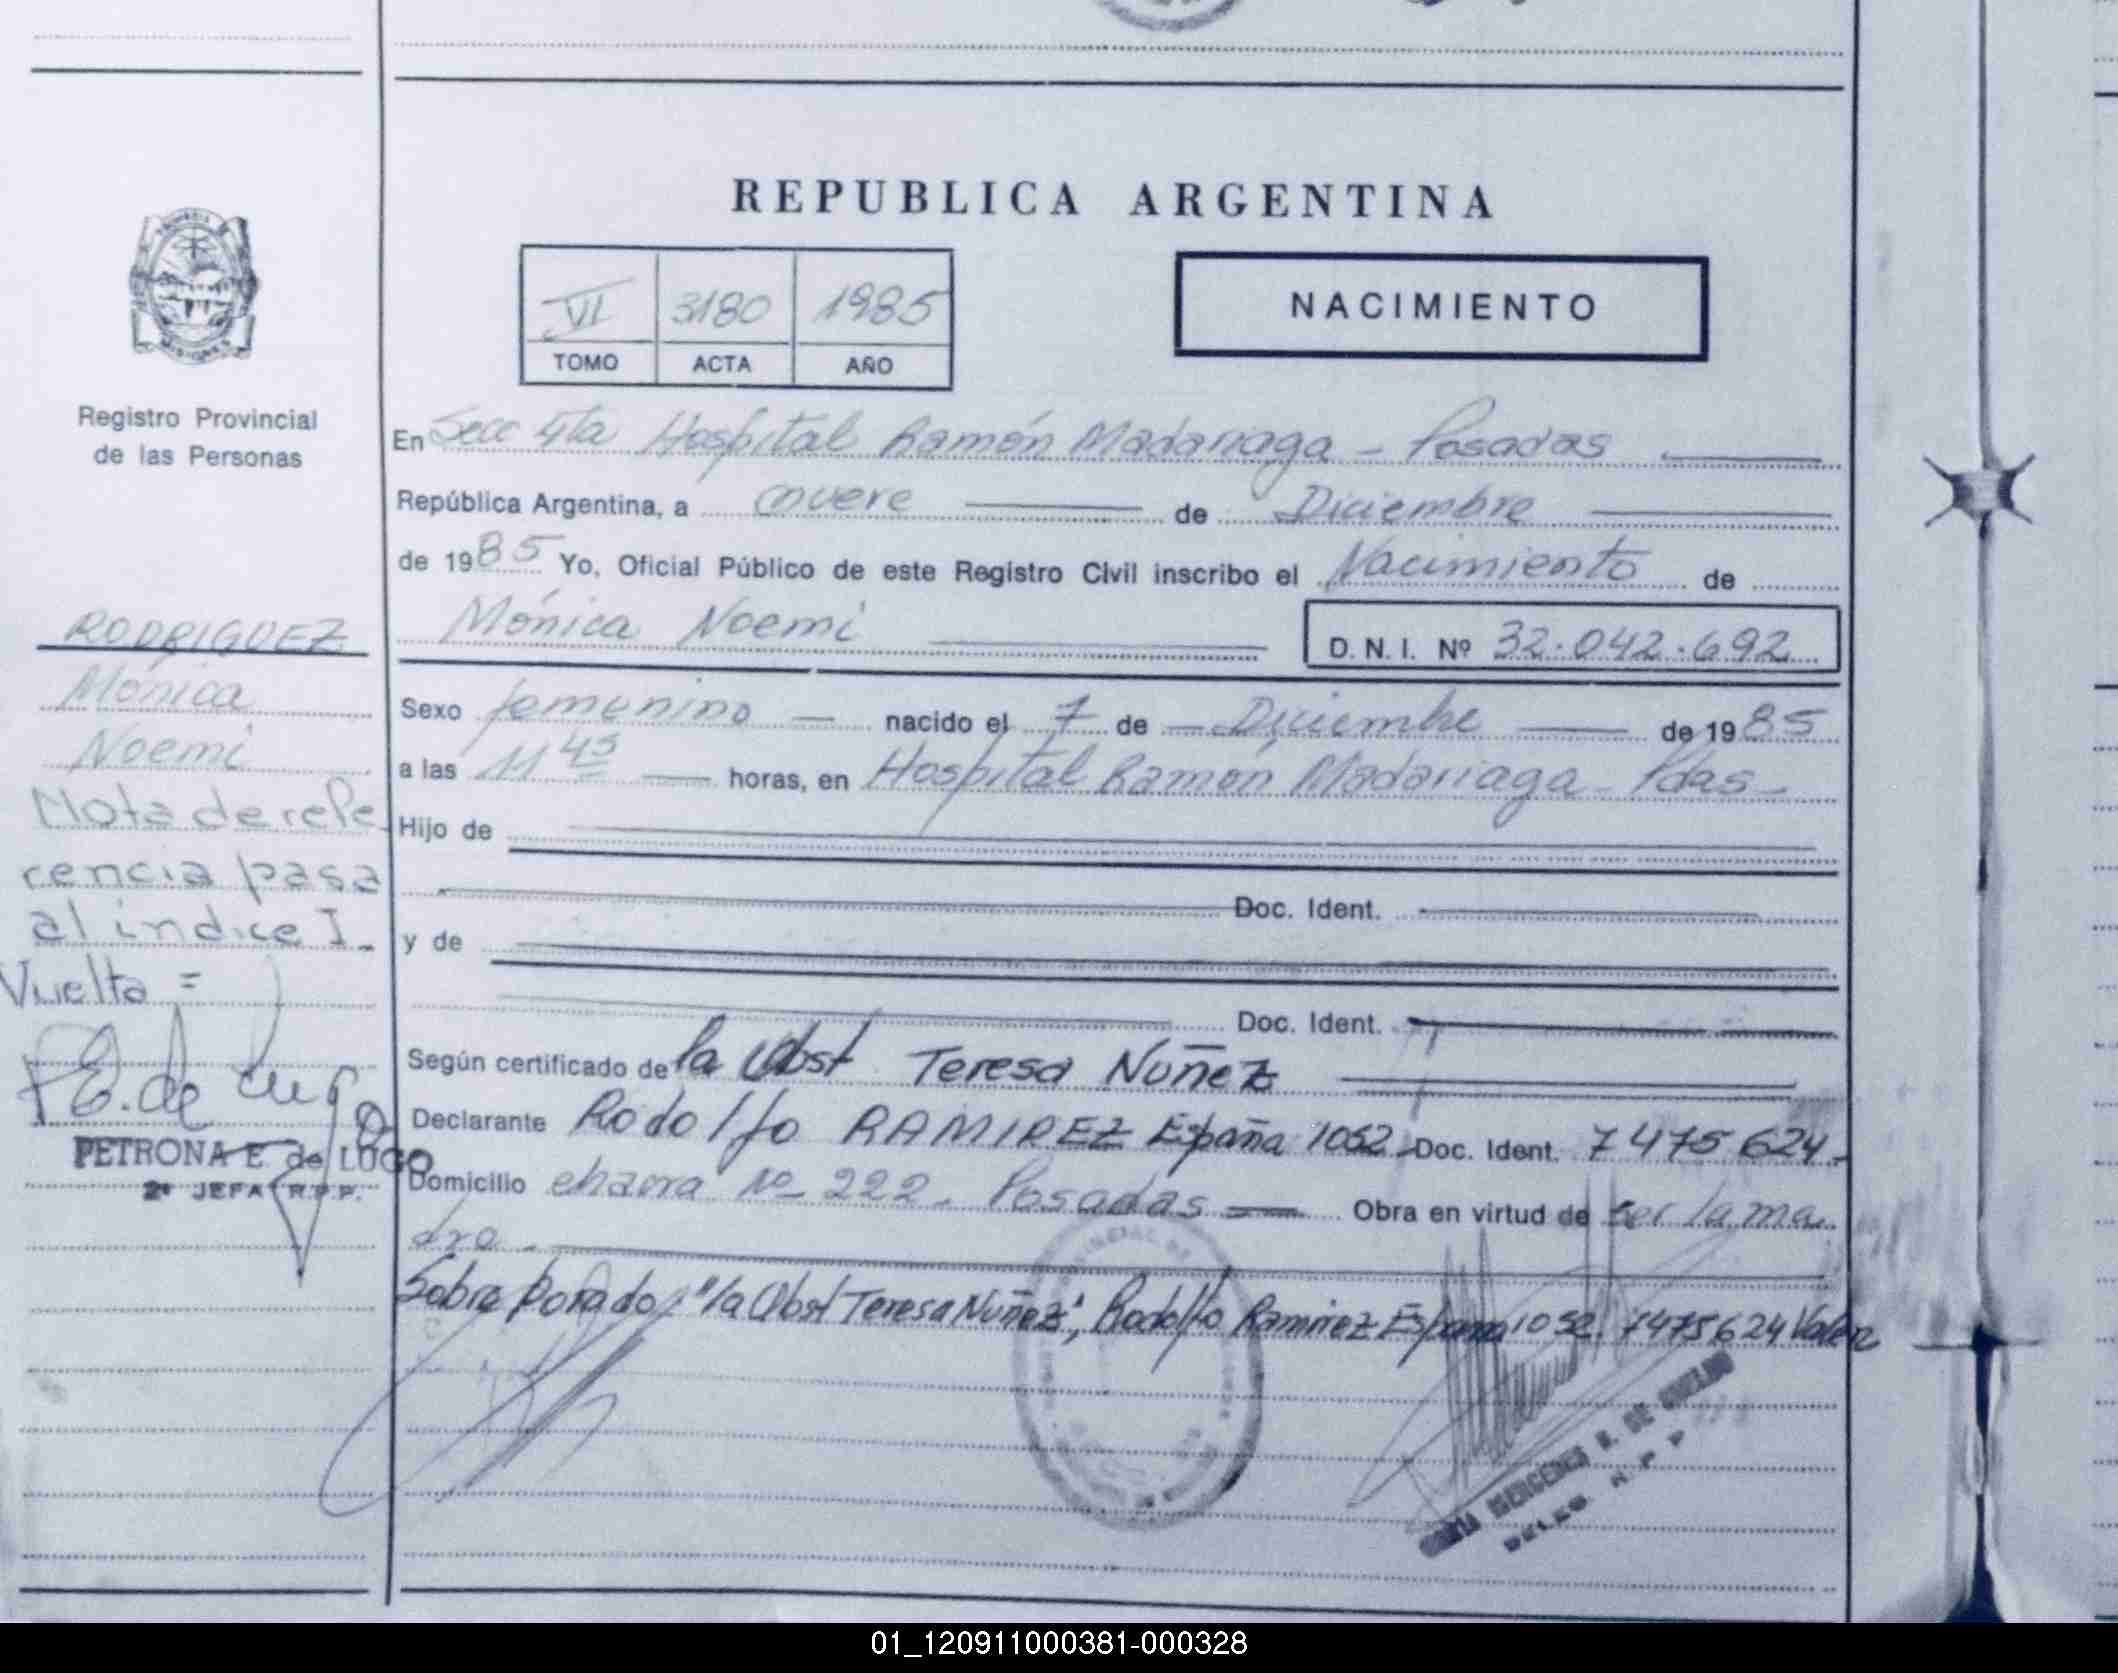 REPUBLICA ARGENTINA
VI 3180 1985
TOMO ACTA AÑO
NACIMIENTO
MISIONES
Registro Provincial
de las Personas
RODRIGUEZ
Mónica
Noemi
Nota de refe
rencia pasa
al indice I_
Vuelta =
P E. de Lugo
PETRONA E. de LUGO
2ª JEFA R.P.P.
En Secc 4ta Hospital Ramón Madariaga - Posadas
República Argentina, a nueve de Diciembre
de 1985 Yo, Oficial Público de este Registro Civil inscribo el Nacimiento de
Mónica Noemi D. N. I. Nº 32.042.692
Sexo femenino — nacido el 7 de Diciembre de 1985
a las 11 45 horas, en Hospital Ramón Madariaga - Pdas -
Hijo de
Doc. Ident.
y de
Doc. Ident.
Según certificado de la Obst Teresa Nuñez
Declarante Rodolfo RAMIREZ España 1052 - Doc. Ident. 7475624 -
Domicilio chacra Nº 222 - Posadas — Obra en virtud de ser la ma
dre -
Sobre borrado: "la Obst Teresa Nuñez", Rodolfo Ramirez España 1052. 7475624 Valen
MERCEDES R. DE
DELEG. R P P
01_120911000381-000328